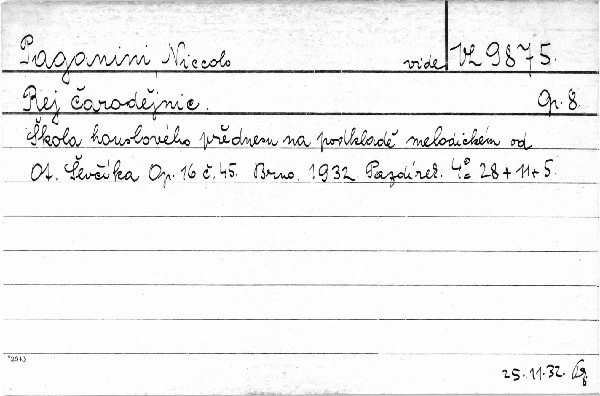 Paganini, Niccolo vide VL 9875.
Rej čarodějnic. Op. 8.
Škola houslového přednesu na podkladě melodickém od
Ot. Ševčíka Op. 16 č. 45. Brno. 1932 Pazdírek. 4° 28 + 11 + 5.
25. 11. 32.